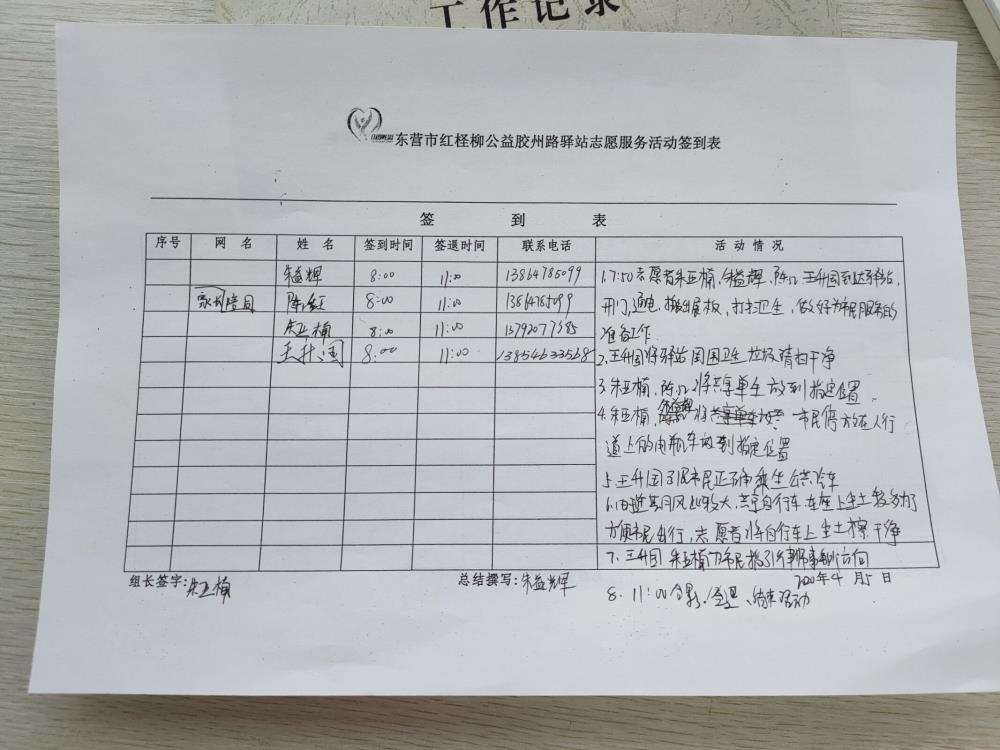 工作记录
东营市红柽柳公益胶州路驿站志愿服务活动签到表
签 到 表
序号 网 名 姓 名 签到时间 签退时间 联系电话 活 动 情 况
朱益辉 8:00 11:00 13864785099
陈红 8:00 11:00 13864785099
朱亚楠 8:00 11:00
王升国 8:00 11:00 13854633568
1.7:50志愿者朱亚楠,朱益辉,陈红 王升国到达驿站,
开门,通电,搬出展板,打扫卫生,做好为市民服务的
准备工作
2.王升国将驿站周围卫生垃圾清扫干净
3.朱亚楠,陈红将共享单车放到指定位置
4.朱亚楠,朱益辉将 市民停放在人行
道上的电瓶车放到指定位置
5.王升国引导市民正确乘坐公共汽车
6.由近期风比较大,共享自行车车座上尘土较多为了
方便市民出行,志愿者将自行车上尘土擦干净
7.王升国 朱亚楠为市民指引 方向
8.11:00合影,签退,结束活动
组长签字:朱亚楠 总结撰写:朱益辉 年4月5日